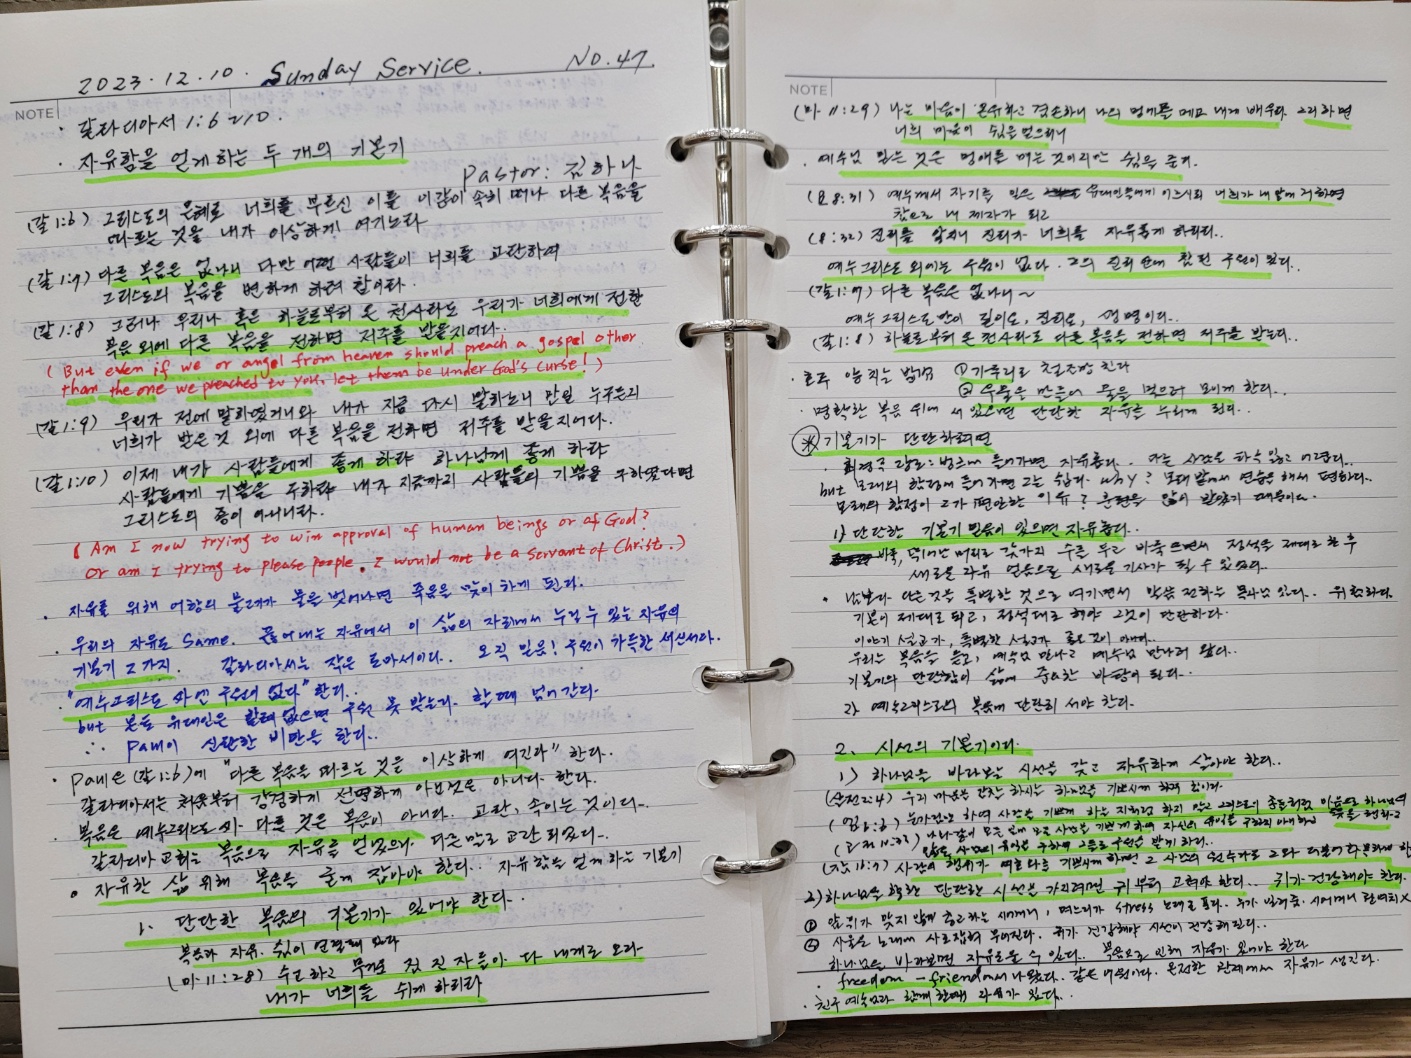 2023.12.10. Sunday Service. No.47.
NOTE
· 갈라디아서 1:6~10
· 자유함을 얻게 하는 두 개의 기본기
Pastor: 김하나
(갈1:6) 그리스도의 은혜로 너희를 부르신 이를 이같이 속히 떠나 다른 복음을
따르는 것을 내가 이상하게 여기노라
(갈1:7) 다른 복음은 없나니 다만 어떤 사람들이 너희를 교란하여
그리스도의 복음을 변하게 하려 함이라.
(갈1:8) 그러나 우리나 혹은 하늘로부터 온 천사라도 우리가 너희에게 전한
복음 외에 다른 복음을 전하면 저주를 받을지어다.
(But even if we or angel from heaven should preach a gospel other
than the one we preached to you, let them be under God's curse!)
(갈1:9) 우리가 전에 말하였거니와 내가 지금 다시 말하노니 만일 누구든지
너희가 받은 것 외에 다른 복음을 전하면 저주를 받을지어다.
(갈1:10) 이제 내가 사람들에게 좋게 하랴 하나님께 좋게 하랴
사람들에게 기쁨을 구하랴 내가 지금까지 사람들의 기쁨을 구하였다면
그리스도의 종이 아니니라.
(Am I now trying to win approval of human beings or of God?
Or am I trying to please people. I would not be a servant of Christ.)
· 자유를 위해 어항의 물고기가 물을 벗어나면 죽음을 맞이하게 된다.
· 우리의 자유도 Same. 뛰어내는 자유에서 이 삶의 자리에서 누릴 수 있는 자유의
기본기 2가지. 갈라디아서는 작은 로마서이다. 오직 믿음! 구원이 가득한 서신서다.
"예수그리스도 외엔 구원이 없다" 한다..
but 본토 유대인은 할례 없으면 구원 못 받는다. 할 때 넘어간다.
∴ Paul이 신랄한 비판을 한다..
· Paul은 (갈1:6)에 "다른 복음을 따르는 것을 이상하게 여긴다" 한다..
갈라디아서는 처음부터 강경하게 선명하게 아닌것은 아니다 한다.
· 복음은 예수그리스도 외 다른 것은 복음이 아니다. 교란, 속이는 것이다..
갈라디아 교회는 복음으로 자유를 얻었으나, 다른 말로 교란 되었다..
· 자유한 삶 위해 복음을 굳게 잡아야 한다.. 자유함을 얻게 하는 기본기
1. 단단한 복음의 기본기가 있어야 한다.
복음과 자유, 쉼이 연결돼 있다
(마11:28) 수고하고 무거운 짐 진 자들아 다 내게로 오라
내가 너희를 쉬게 하리라
NOTE
(마11:29) 나는 마음이 온유하고 겸손하니 나의 멍에를 메고 내게 배우라 그리하면
너희 마음이 쉼을 얻으리니
· 예수님 믿는 것은 멍에를 메는 것이지만 쉼을 준다.
(요8:31) 예수께서 자기를 믿은 유대인들에게 이르시되 너희가 내 말에 거하면
참으로 내 제자가 되고
(8:32) 진리를 알지니 진리가 너희를 자유롭게 하리라..
예수그리스도 외에는 구원이 없다. 그의 진리 안에 참된 구원이 된다.
(갈1:7) 다른 복음은 없나니~
예수그리스도만이 길이요, 진리요, 생명이다..
(갈1:8) 하늘로부터 온 천사라도 다른 복음을 전하면 저주를 받는다.
· 양 치는 방법 ① 기둥리로 철조망 친다
② 우물을 만들어 물을 먹으러 모이게 한다.
· 명확한 복음 위에 서 있으면 단단한 자유를 누리게 된다..
※ 기본기가 단단하려면
but 모래의 함정에 들어가면 그는 쉽다. why? 모래밭에서 연습을 해서 편하다..
모래의 함정이 그가 편안한 이유? 훈련을 많이 받았기 때문이다.
1) 단단한 기본기 믿음이 있으면 자유롭다..
바둑, 뛰어난 머리로 몇가지 수를 두고 바둑 두면서 정석을 제대로 한 후
새로운 자유 얻음으로 새로운 기사가 될 수 있었다..
· 남보다 다른 것을 특별한 것으로 여기면서 말씀 전하는 목사님 있다.. 위험하다.
기본이 제대로 되고, 정석대로 해야 그것이 단단하다.
이야기 설교가, 특별한 설교가 좋은 것이 아니다..
우리는 복음을 듣고, 예수님 만나고 예수님 만나러 왔다..
기본기의 단단함이 삶에 중요한 바탕이 된다..
2) 예수그리스도의 복음에 단단히 서야 한다.
2. 시선의 기본기이다.
1) 하나님을 바라보는 시선을 갖고 자유하게 살아야 한다..
(살전2:4) 우리 마음을 감찰 하시는 하나님을 기쁘시게 하려 함이라.
(엡6:6) 눈가림만 하여 사람을 기쁘게 하는 자처럼 하지 말고 그리스도의 종들처럼 마음으로 하나님의 뜻을 행하고
(고전10:33) 나와 같이 모든 일에 모든 사람을 기쁘게 하여 자신의 유익을 구하지 아니하고
많은 사람의 유익을 구하여 그들로 구원을 받게 하라..
(잠16:7) 사람의 행위가 여호와를 기쁘시게 하면 그 사람의 원수라도 그와 더불어 화목하게 하
2) 하나님을 향한 단단한 시선을 가지려면 귀부터 고쳐야 한다.. 귀가 건강해야 한다.
① 앞뒤가 맞지 않게 충고하는 시어머니, 며느리가 stress
② 사울은 노래에 사로잡혀 무너진다. 귀가 건강해야 시선이 건강해진다..
하나님을 바라보면 자유로울 수 있다.. 복음으로 인해 자유가 있어야 한다
· freedom - friend에서 나왔다. 같은 어원이다. 온전한 관계에서 자유가 생긴다.
· 친구 예수님과 함께 할때 자유가 있다..